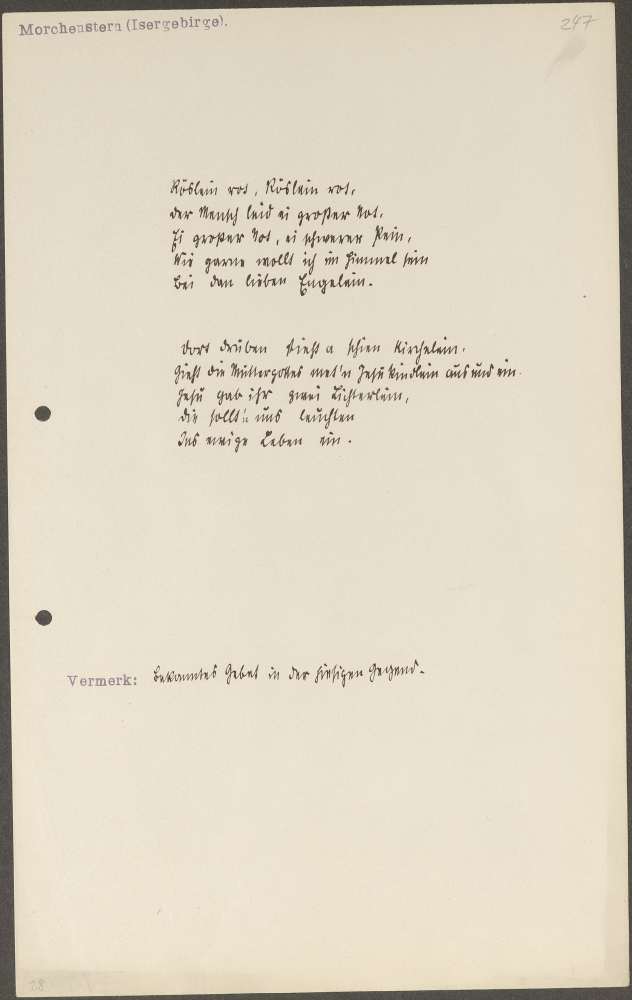 Morchenstern (Isergebirge).
247
Röslein rot, Röslein rot,
der Mensch leid ei großer Not,
Ei großer Not, ei schwerer Pein,
Wie garne wollt ich im Himmel sein
Bei dan lieben Engelein.
Dort drüben stieht a schien Kirchelein.
Gieht die Muttergottes met'n Jesukindlein aus und ein.
Jesu gab ihr zwei Lichterlein,
die sollt'n uns leuchten
Ins ewige Leben ein.
Vermerk: Bekanntes Gebet in der hiesigen Gegend.
28